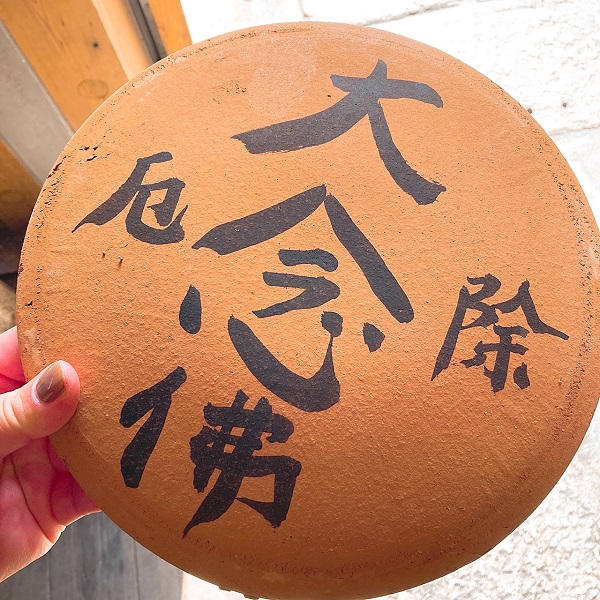 除
大念佛
厄